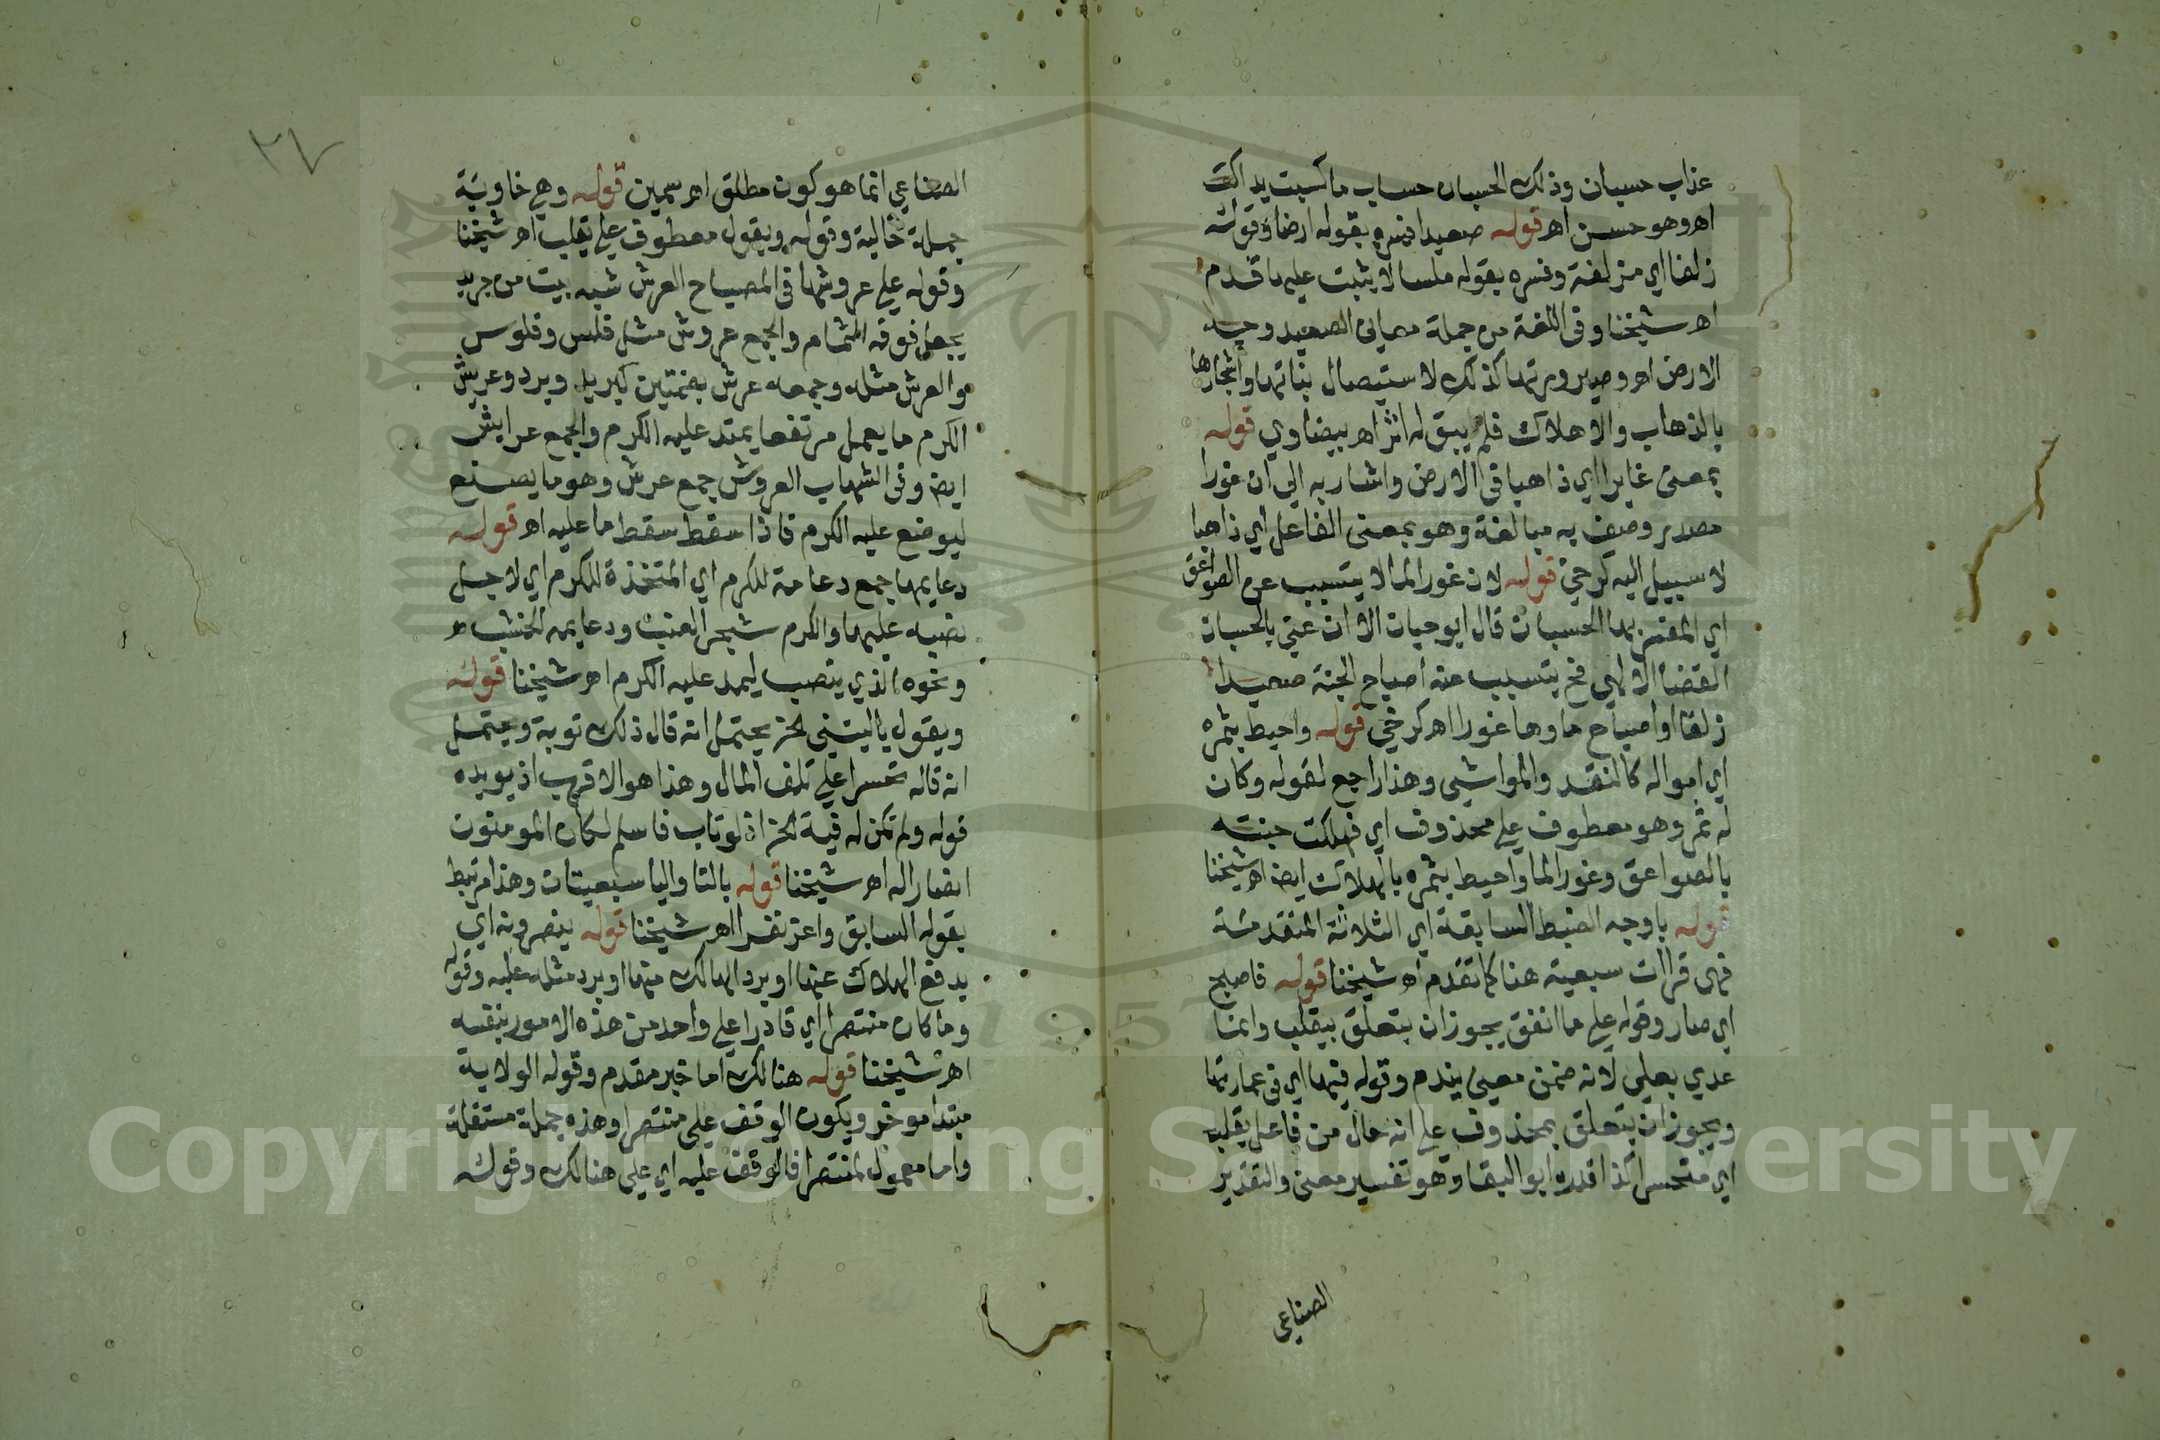 عذاب حسبان وذلك الحسبان حساب ما كسبت يداك
اهـ وهو حسن اهـ قوله صعيدا فسره بقوله ارضا وقوله
زلقا اي مزلقة وفسره بقوله ملسا لا يثبت عليها قدم
اهـ شيخنا وفي اللغة من جملة معاني الصعيد وجه
الارض اهـ وصيرورتها كذلك لاستيصال نباتها واشجارها
بالذهاب والاهلاك فلم يبق له اثر اهـ بيضاوي قوله
بمعنى غايرا اي ذاهبا في الارض واشار به الي ان غورا
مصدر وصف به مبالغة وهو بمعنى الفاعل اي ذاهبا
لا سبيل اليه كرخي قوله لان غور الما لا يتسبب عن الصواعق
اي المفسر بها الحسبان قال ابو حيان الا ان عني بالحسبان
القضا الالهي فح يتسبب عنه اصباح الجنة صعيدا
زلقا او اصباح ماوها غورا اهـ كرخي قوله واحيط بثمره
اي امواله كالنقد والمواشي وهذا راجع لقوله وكان
له ثمر وهو معطوف علي محذوف اي فهلكت جنته
بالصواعق وغور الما واحيط بثمره بالهلاك ايضا اهـ شيخنا
قوله باوجه الضبط السابقة اي الثلاثة المتقدمة
فهي قراات سبعية هنا كما تقدم اهـ شيخنا قوله فاصبح
اي صار وقوله علي ما انفق يجوز ان يتعلق بيقلب وانما
عدي بعلي لانه ضمن معنى يندم وقوله فيها اي في عمارتها
ويجوز ان يتعلق بمحذوف علي انه حال من فاعل يقلب
اي متحسرا كذا قدره ابو البقا وهو تفسير معنى والتقدير
الصناعي
٢٧
الصناعي انما هو كون مطلق اهـ سمين قوله وهي خاوية
جملة حالية وقوله ويقول معطوف علي يقلب اهـ شيخنا
وقوله علي عروشها في المصباح العرش شبه بيت من جريد
يجعل فوقه الثمام والجمع عروش مثل فلس وفلوس
والعرش مثله وجمعه عرش بضمتين كبريد وبرد وعريش
الكرم ما يعمل مرتفعا يمتد عليه الكرم والجمع عرايش
ايضا وفي الشهاب العروش جمع عرش وهو ما يصنع
ليوضع عليه الكرم فاذا سقط سقط ما عليه اهـ قوله
دعايمها جمع دعامة للكرم اي المتخذة للكرم اي لاجل
نصبه عليها والكرم شجر العنب ودعايمه الخشب
ونحوه الذي ينصب ليمد عليه الكرم اهـ شيخنا قوله
ويقول ياليتني الخ يحتمل انه قال ذلك توبة ويحتمل
انه قاله تحسرا علي تلف المال وهذا هو الاقرب اذ يويده
قوله ولم تكن له فية الخ اذ لو تاب فاسلم لكان المومنون
انصارا له اهـ شيخنا قوله بالتا واليا سبعيتان وهذا مرتبط
بقوله السابق واعز نفرا اهـ شيخنا قوله ينصرونه اي
يدفع الهلاك عنها او يرد الهالك منها او يرد مثله عليه وقوله
وما كان منتصرا اي قادرا علي واحد من هذه الامور بنفسه
اهـ شيخنا قوله هنالك اما خبر مقدم وقوله الولاية
مبتدا موخر ويكون الوقف علي منتصرا وهذه جملة مستقلة
واما معمول لمنتصرا فالوقف عليه اي علي هنالك وقوله
Copyright © King Saud University
1957